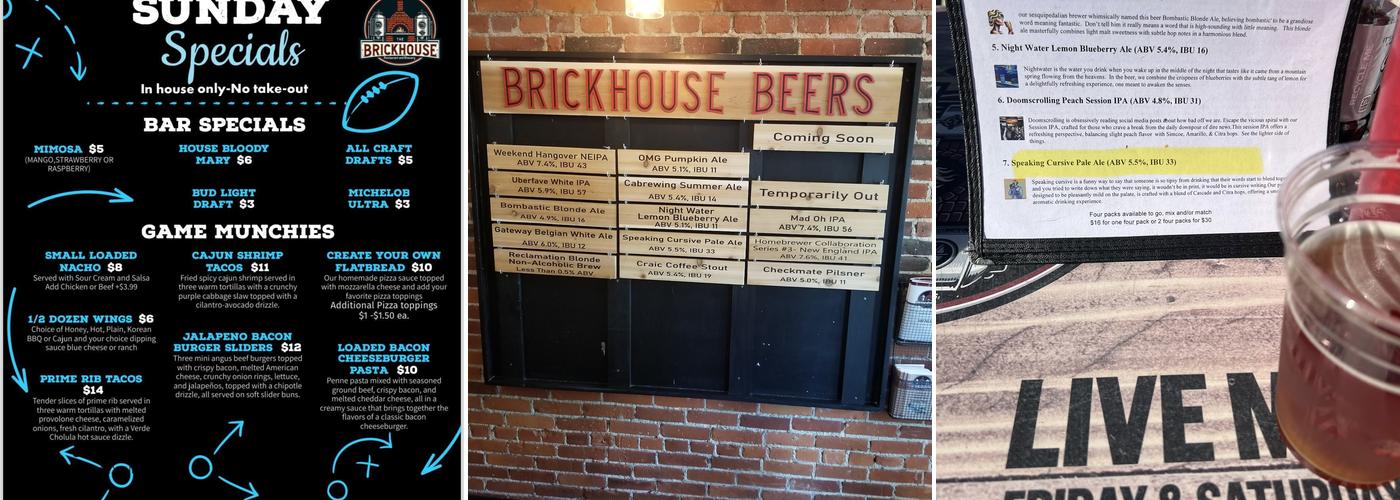 SUNDAY
Specials
THE
BRICKHOUSE
In house only-No take-out
BAR SPECIALS
MIMOSA $5
(MANGO,STRAWBERRY OR
RASPBERRY)
HOUSE BLOODY
MARY $6
ALL CRAFT
DRAFTS $5
BUD LIGHT
DRAFT $3
MICHELOB
ULTRA $3
GAME MUNCHIES
SMALL LOADED
NACHO $8
Served with Sour Cream and Salsa
Add Chicken or Beef +$3.99
CAJUN SHRIMP
TACOS $11
Fried spicy cajun shrimp served in
three warm tortillas with a crunchy
purple cabbage slaw topped with a
cilantro-avocado drizzle.
CREATE YOUR OWN
FLATBREAD $10
Our homemade pizza sauce topped
with mozzarella cheese and add your
favorite pizza toppings
Additional Pizza toppings
$1 -$1.50 ea.
1/2 DOZEN WINGS $6
Choice of Honey, Hot, Plain, Korean
BBQ or Cajun and your choice dipping
sauce blue cheese or ranch
JALAPENO BACON
BURGER SLIDERS $12
Three mini angus beef burgers topped
with crispy bacon, melted American
cheese, crunchy onion rings, lettuce,
and jalapeños, topped with a chipotle
drizzle, all served on soft slider buns.
LOADED BACON
CHEESEBURGER
PASTA $10
Penne pasta mixed with seasoned
ground beef, crispy bacon, and
melted cheddar cheese, all in a
creamy sauce that brings together the
flavors of a classic bacon
cheeseburger.
PRIME RIB TACOS
$14
Tender slices of prime rib served in
three warm tortillas with melted
provolone cheese, caramelized
onions, fresh cilantro, with a Verde
Cholula hot sauce dizzle.
BRICKHOUSE BEERS
Coming Soon
Weekend Hangover NEIPA
ABV 7.4%, IBU 43
Uberfave White IPA
ABV 5.9%, IBU 57
Bombastic Blonde Ale
ABV 4.9%, IBU 16
Gateway Belgian White Ale
ABV 6.0%, IBU 12
Reclamation Blonde
Non-Alcoholic Brew
Less Than 0.5% ABV
OMG Pumpkin Ale
ABV 5.1%, IBU 11
Cabrewing Summer Ale
ABV 5.4%, IBU 14
Night Water
Lemon Blueberry Ale
ABV 5.1%, IBU 11
Speaking Cursive Pale Ale
ABV 5.5%, IBU 33
Craic Coffee Stout
ABV 5.4%, IBU 19
Temporarily Out
Mad Oh IPA
ABV 7.4%, IBU 56
Homebrewer Collaboration
Series #3- New England IPA
ABV 7.6%, IBU 41
Checkmate Pilsner
ABV 5.0%, IBU 11
our sesquipedalian brewer whimsically named this beer Bombastic Blonde Ale, believing bombastic to be a grandiose
word meaning fantastic. Don't tell him it really means a word that is high-sounding with little meaning. This blonde
ale masterfully combines light malt sweetness with subtle hop notes in a harmonious blend.
5. Night Water Lemon Blueberry Ale (ABV 5.4%, IBU 16)
Nightwater is the water you drink when you wake up in the middle of the night that tastes like it came from a mountain
spring flowing from the heavens. In the beer, we combine the crispness of blueberries with the subtle tang of lemon for
a delightfully refreshing experience, one meant to awaken the senses.
6. Doomscrolling Peach Session IPA (ABV 4.8%, IBU 31)
Doomscrolling is obsessively reading social media posts about how bad off we are. Escape the vicious spiral with our
Session IPA, crafted for those who crave a break from the daily downpour of dire news. This session IPA offers a
refreshing perspective, balancing slight peach flavor with Simcoe, Amarillo, & Citra hops. See the lighter side of
things.
7. Speaking Cursive Pale Ale (ABV 5.5%, IBU 33)
Speaking cursive is a funny way to say that someone is so tipsy from drinking that their words start to blend
and you tried to write down what they were saying, it wouldn't be in print, it would be in cursive writing. Our
designed to be pleasantly mild on the palate, is crafted with a blend of Cascade and Citra hops, offering a
aromatic drinking experience.
Four packs available to go, mix and/or match
$16 for one four pack or 2 four packs for $30
RECYCLE
LIVE
FRIDAY & SATURDAY